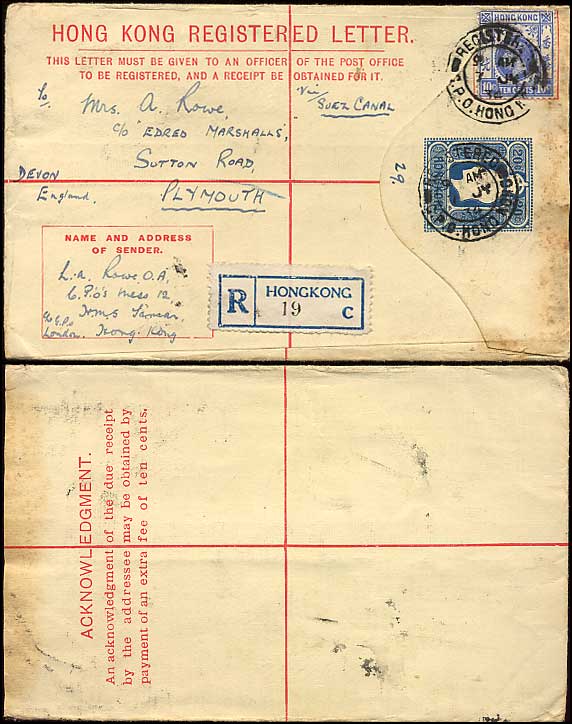 HONG KONG REGISTERED LETTER.
THIS LETTER MUST BE GIVEN TO AN OFFICER OF THE POST OFFICE
TO BE REGISTERED, AND A RECEIPT BE OBTAINED FOR IT.
To
Mrs. A. Rowe,
c/o "EDRED MARSHALLS",
SUTTON ROAD,
PLYMOUTH
DEVON
England.
Via/
SUEZ CANAL
HONGKONG
10 TEN CENTS 10
REGISTER
AM
G.P.O. HONG K
29
AM
NAME AND ADDRESS
OF SENDER.
L.A. Rowe O.A,
C.P.O's Mess 12,
H.M.S Tamar,
Hong Kong
c/o G.P.O
London.
R
HONGKONG
19 C
ACKNOWLEDGMENT.
An acknowledgment of the due receipt
by the addressee may be obtained by
payment of an extra fee of ten cents.